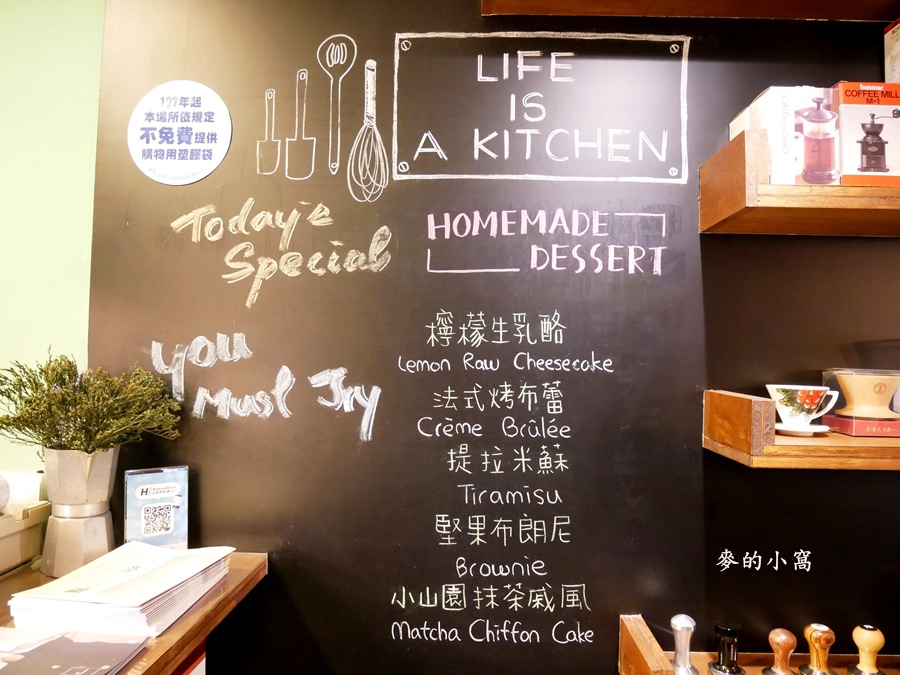 LIFE
IS
A KITCHEN
107年起
本場所依規定
不免費提供
購物用塑膠袋
Today's
Special
HOMEMADE
DESSERT
You
Must Try
檸檬生乳酪
Lemon Raw Cheesecake
法式烤布蕾
Crème Brûlée
提拉米蘇
Tiramisu
堅果布朗尼
Brownie
小山園抹茶戚風
Matcha Chiffon Cake
COFFEE MILL
M-1
Hi
麥的小窩